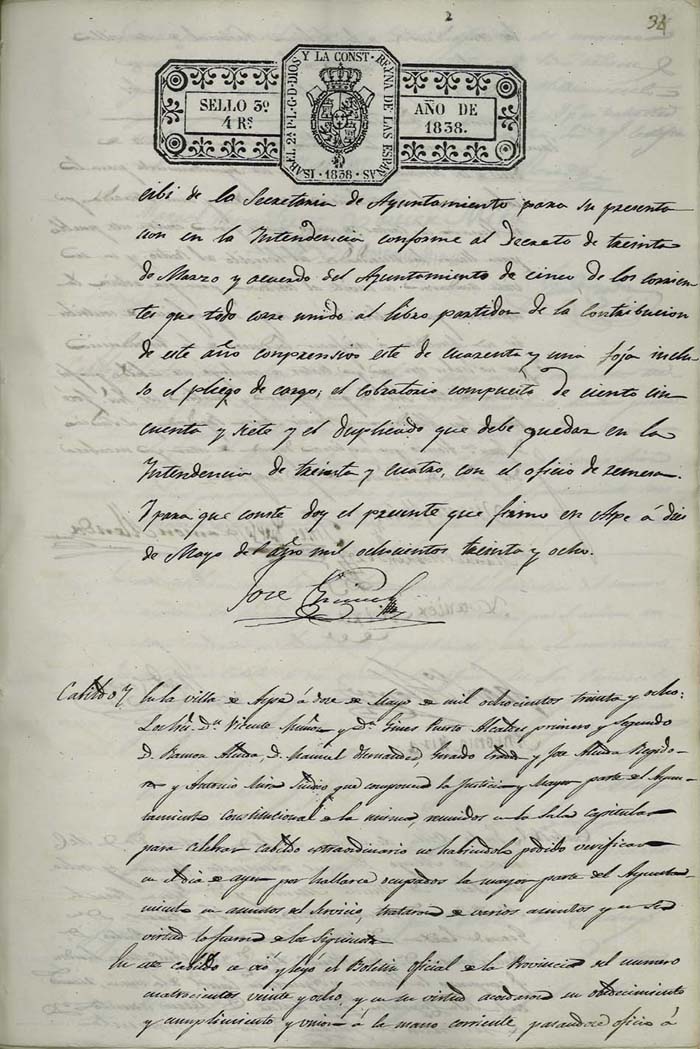 2
34
ISABEL 2ª P. L. G. D. DIOS Y LA CONST. REYNA DE LAS ESPAÑAS · 1838 ·
SELLO 3º
4 Rs
AÑO DE
1838.
cibi de la Secretaria de Ayuntamiento para su presenta
cion en la Intendencia conforme al Decreto de treinta
de Marzo y acuerdo del Ayuntamiento de cinco de los corrien
tes que todo corre unido al libro partidor de la contribucion
de este año comprensivo este de cuarenta y una foja inclu
so el pliego de cargo; el cobratorio compuesto de ciento cin
cuenta y siete y el duplicado que debe quedar en la
Intendencia de treinta y cuatro, con el oficio de remesa.
Y para que conste doy el presente que firmo en Aspe á diez
de Mayo del año mil ochocientos treinta y ocho.
Jose
Cabildo En la villa de Aspe á doce de Mayo de mil ochocientos treinta y ocho
Los Sres. Dn. Vicente Muñoz y Dn. Gines Puerto Alcaldes primero y segundo
D. Ramon Almodea, D. Manuel Hernandez, Gerardo y Jose Regido-
res y Antonio Mira Sindico, que componen la Justicia y Mayor parte del Ayun-
tamiento Constitucional de la misma, reunidos en la Sala Capitular
para celebrar cabildo extraordinario no habiendolo podido verificar
en el dia de ayer por hallarse ocupados la mayor parte del Ayunta
miento en asuntos del servicio, trataron de varios asuntos y en su
virtud lo fueron de los siguientes
En este cabildo se vió y leyó el Boletin oficial de la Provincia del numero
cuatrocientos veinte y ocho, y en su virtud acordaron su obedecimiento
y cumplimiento y union á la mano corriente, pasandose oficio á